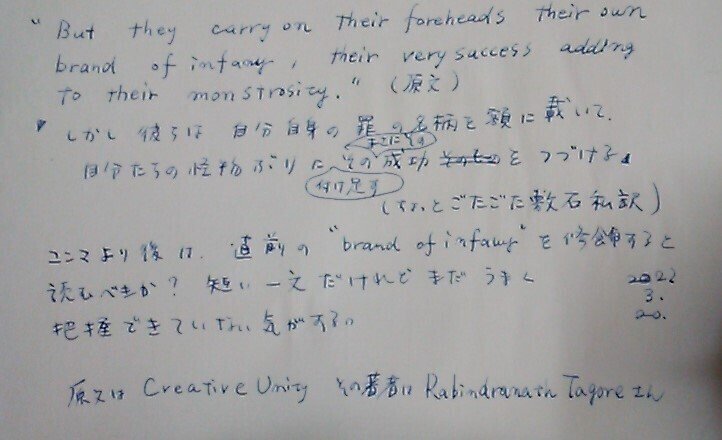 "But they carry on their foreheads their own
brand of infamy, their very success adding
to their monstrosity." (原文)
"しかし彼らは自分自身の罪の名柄を額に載いて、
自分たちの怪物ぶりにその成功をつづける。
付け足す
(ちょっとごたごた敷石私訳)
コンマより後は、直前の"brand of infamy"を修飾すると
読むべきか? 短い一文だけれどまだうまく
把握できていない気がする。
2022
3.
20.
原文は Creative Unity その著者は Rabindranath Tagore さん